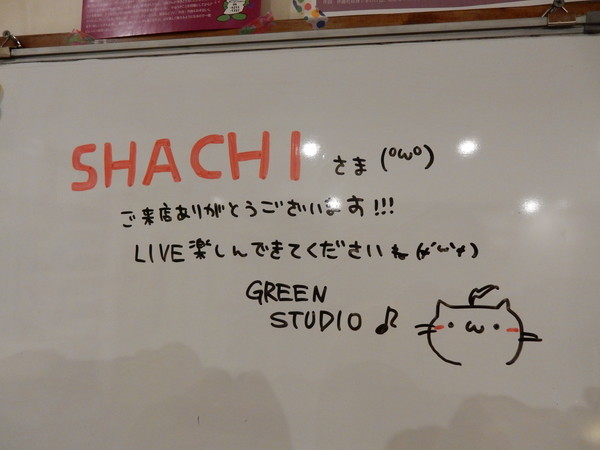 SHACHI さま (°ω°)
ご来店ありがとうございます!!!
LIVE楽しんできてくださいね(*'ω'*)
GREEN
STUDIO ♪